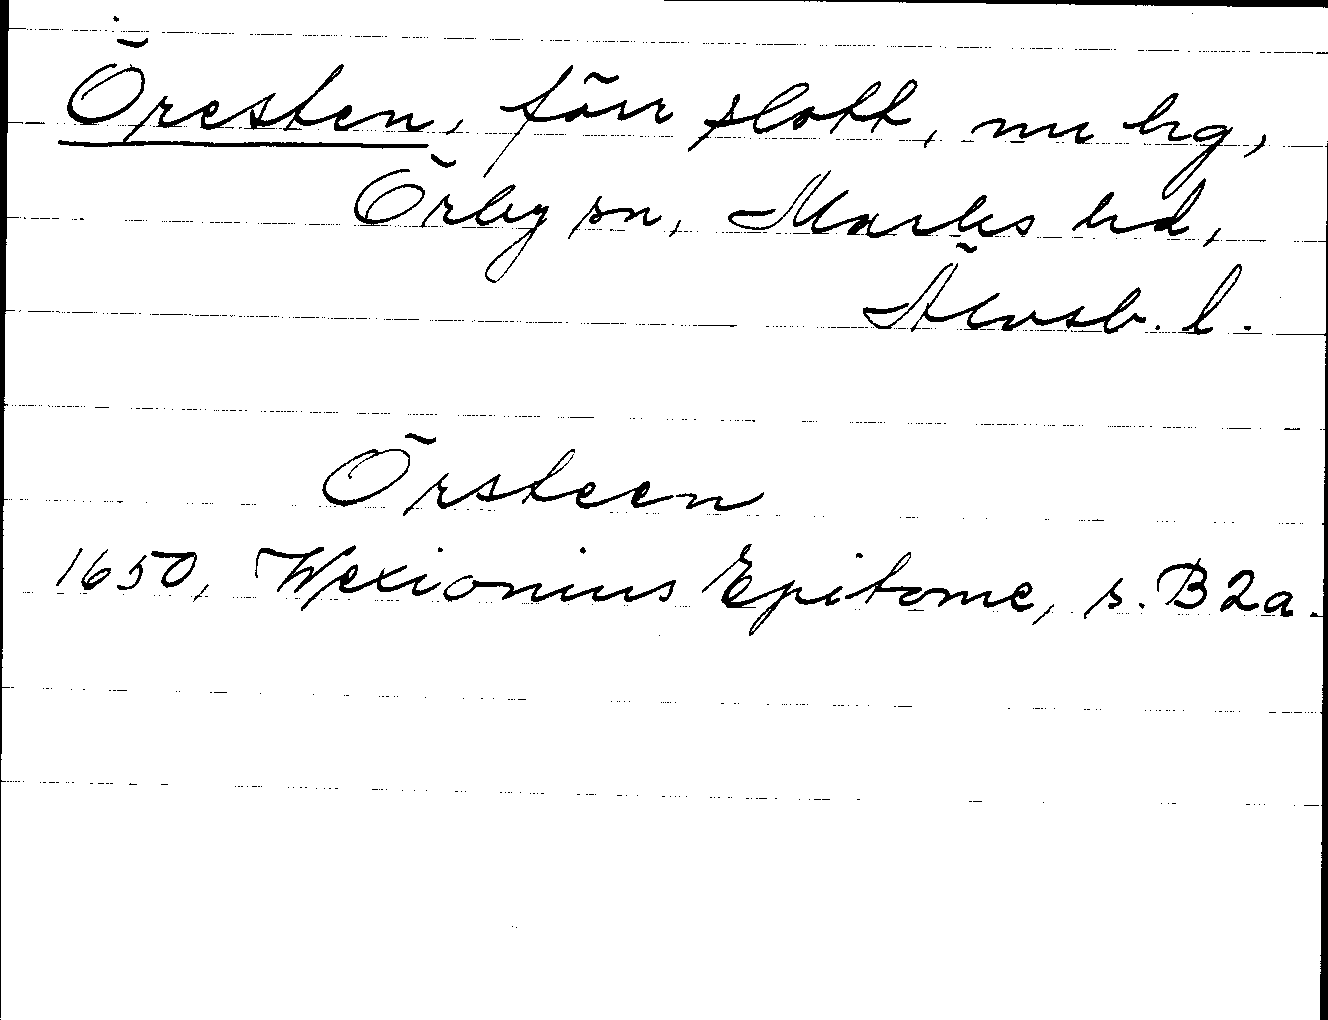 Öresten, förr slott, nu hg,
Örby sn, Marks hd,
Älvsb. l.
Örsteen
1650, Wexionius Epitome, s. B2a.